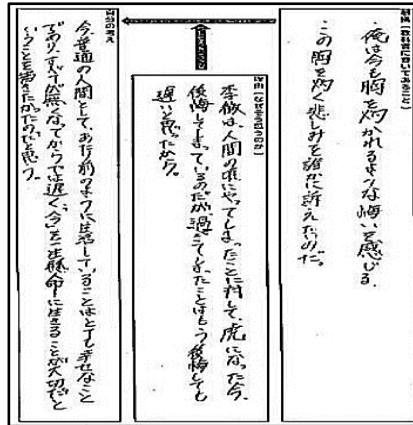 根拠(教科書に書いてあること)
・俺は今も胸を灼かれるような悔いを感じる。
この胸を灼く悲しみを誰かに訴えたいのだ。
理由(なぜそう思うのか)
李徴は、人間の頃にやってしまったことに対して、虎になった今、
後悔してしまっているのだが、過ぎてしまったことはもう後悔しても
遅いと思ったから。
自分の考え
今、普通の人間として、あたり前のように生活していることはとても幸せなこと
であり、すべてが無くなってからでは遅く、今を一生懸命に生きることが大切だと
いうことを書きたかったのだと思う。